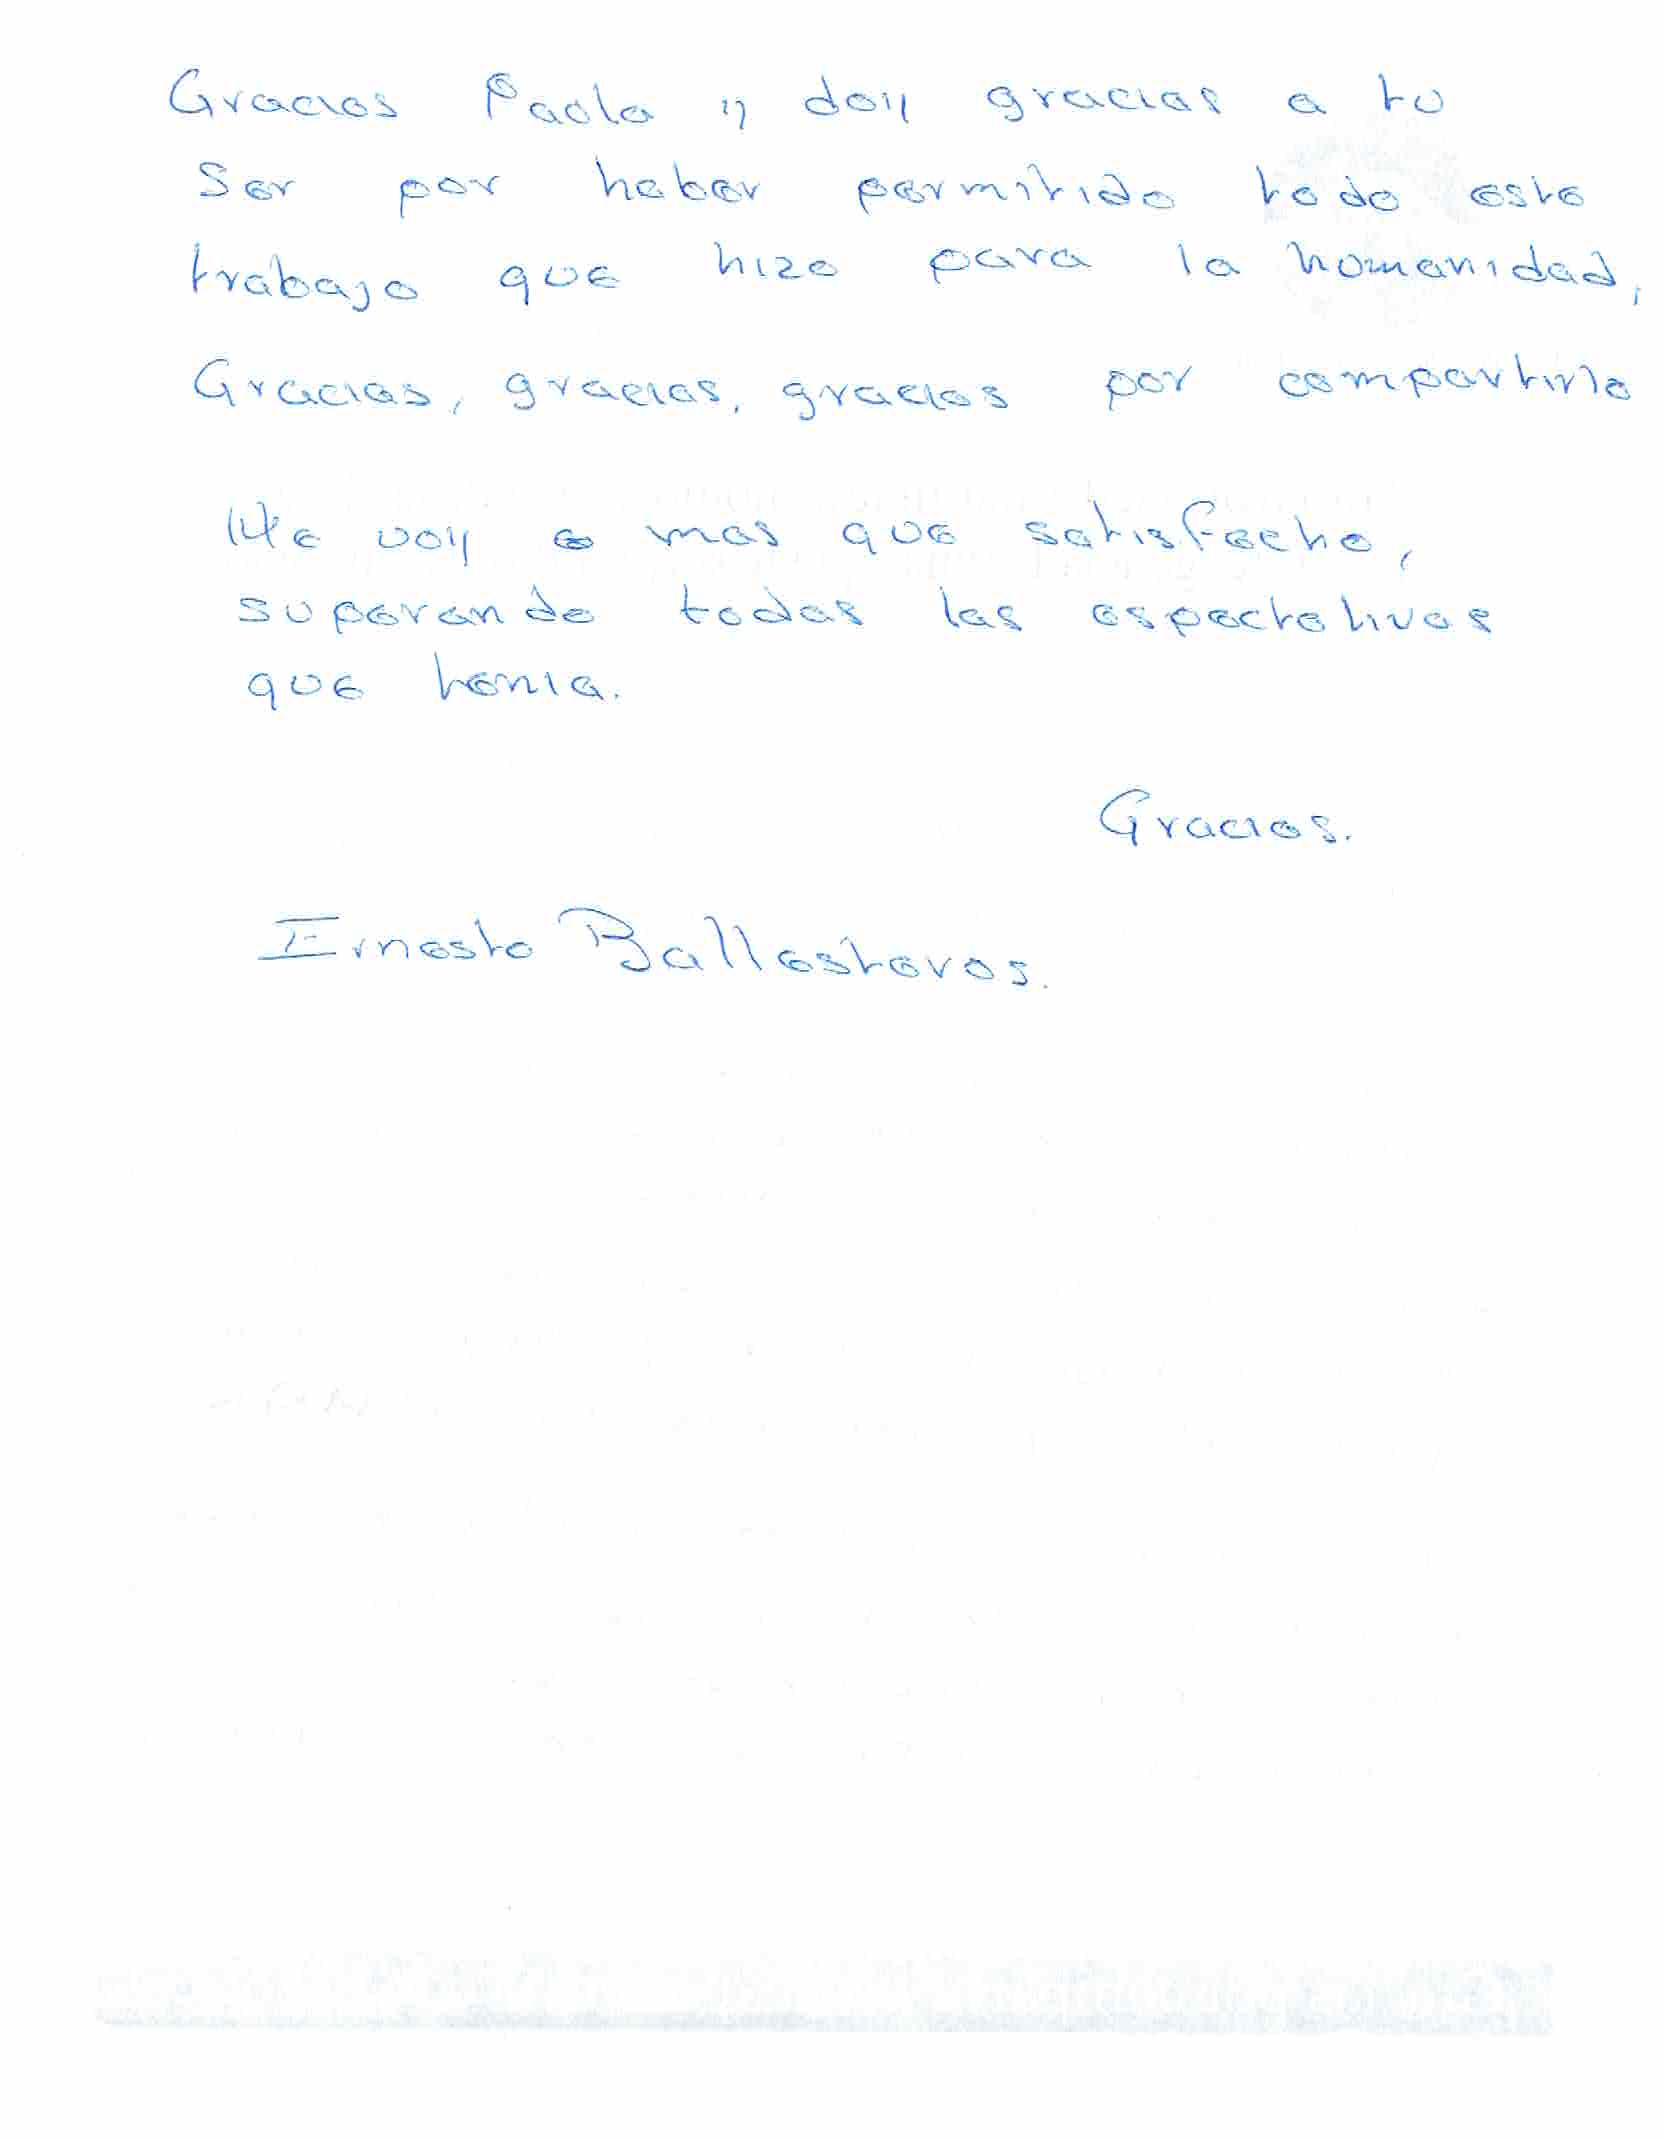 Gracias Paola y doy gracias a tu
Ser por haber permitido todo este
trabajo que hizo para la humanidad,
Gracias, gracias, gracias por compartirlo
Me voy mas que satisfecho,
superando todas las espectativas
que tenia.
Gracias.
Ernesto Ballesteros.